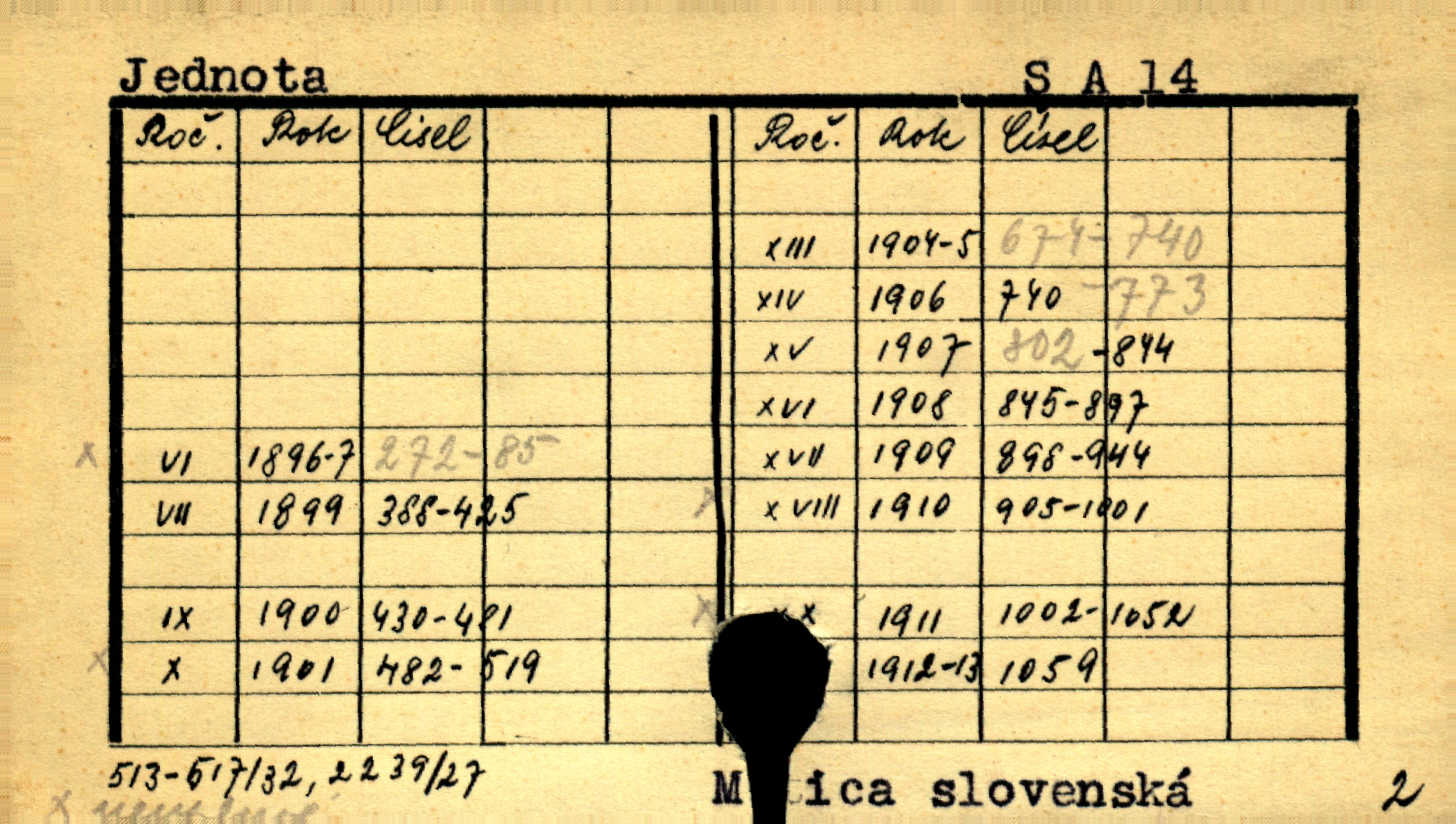 Jednota S A 14
Roč. Rok Čisel Roč. Rok Čísel
XIII 1904-5 674-740
XIV 1906 740-773
XV 1907 802-844
XVI 1908 845-897
x VI 1896-7 272-85 XVII 1909 898-944
VII 1899 388-425 x XVIII 1910 905-1001
IX 1900 430-481 x X 1911 1002-1052
x X 1901 482-519 1912-13 1059
513-517/32, 2239/27
M tica slovenská 2
x